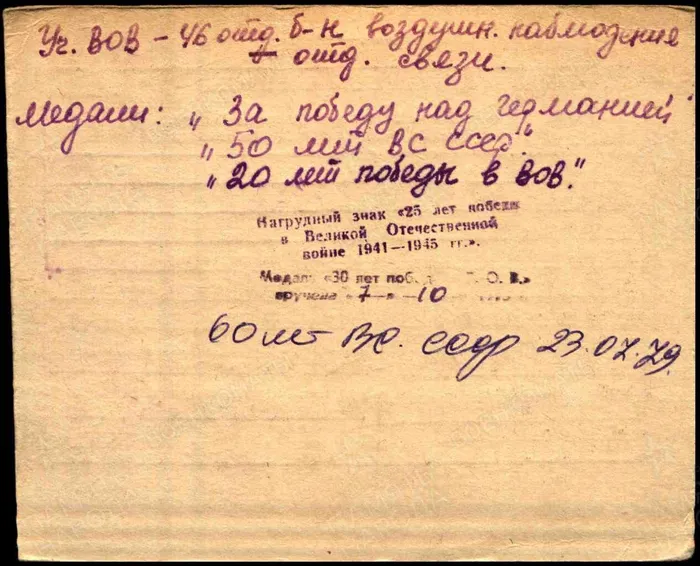 Уч. ВОВ – 46 отд. б-н воздушн. наблюдения
отд. связи.
Медали: „За победу над Германией"
„50 лет ВС СССР."
„20 лет победы в ВОВ."
Нагрудный знак «25 лет победы
в Великой Отечественной
войне 1941—1945 гг.».
Медаль «30 лет поб О. В.»
вручена «7 » 10
60 лет ВС. СССР 23.07.79.